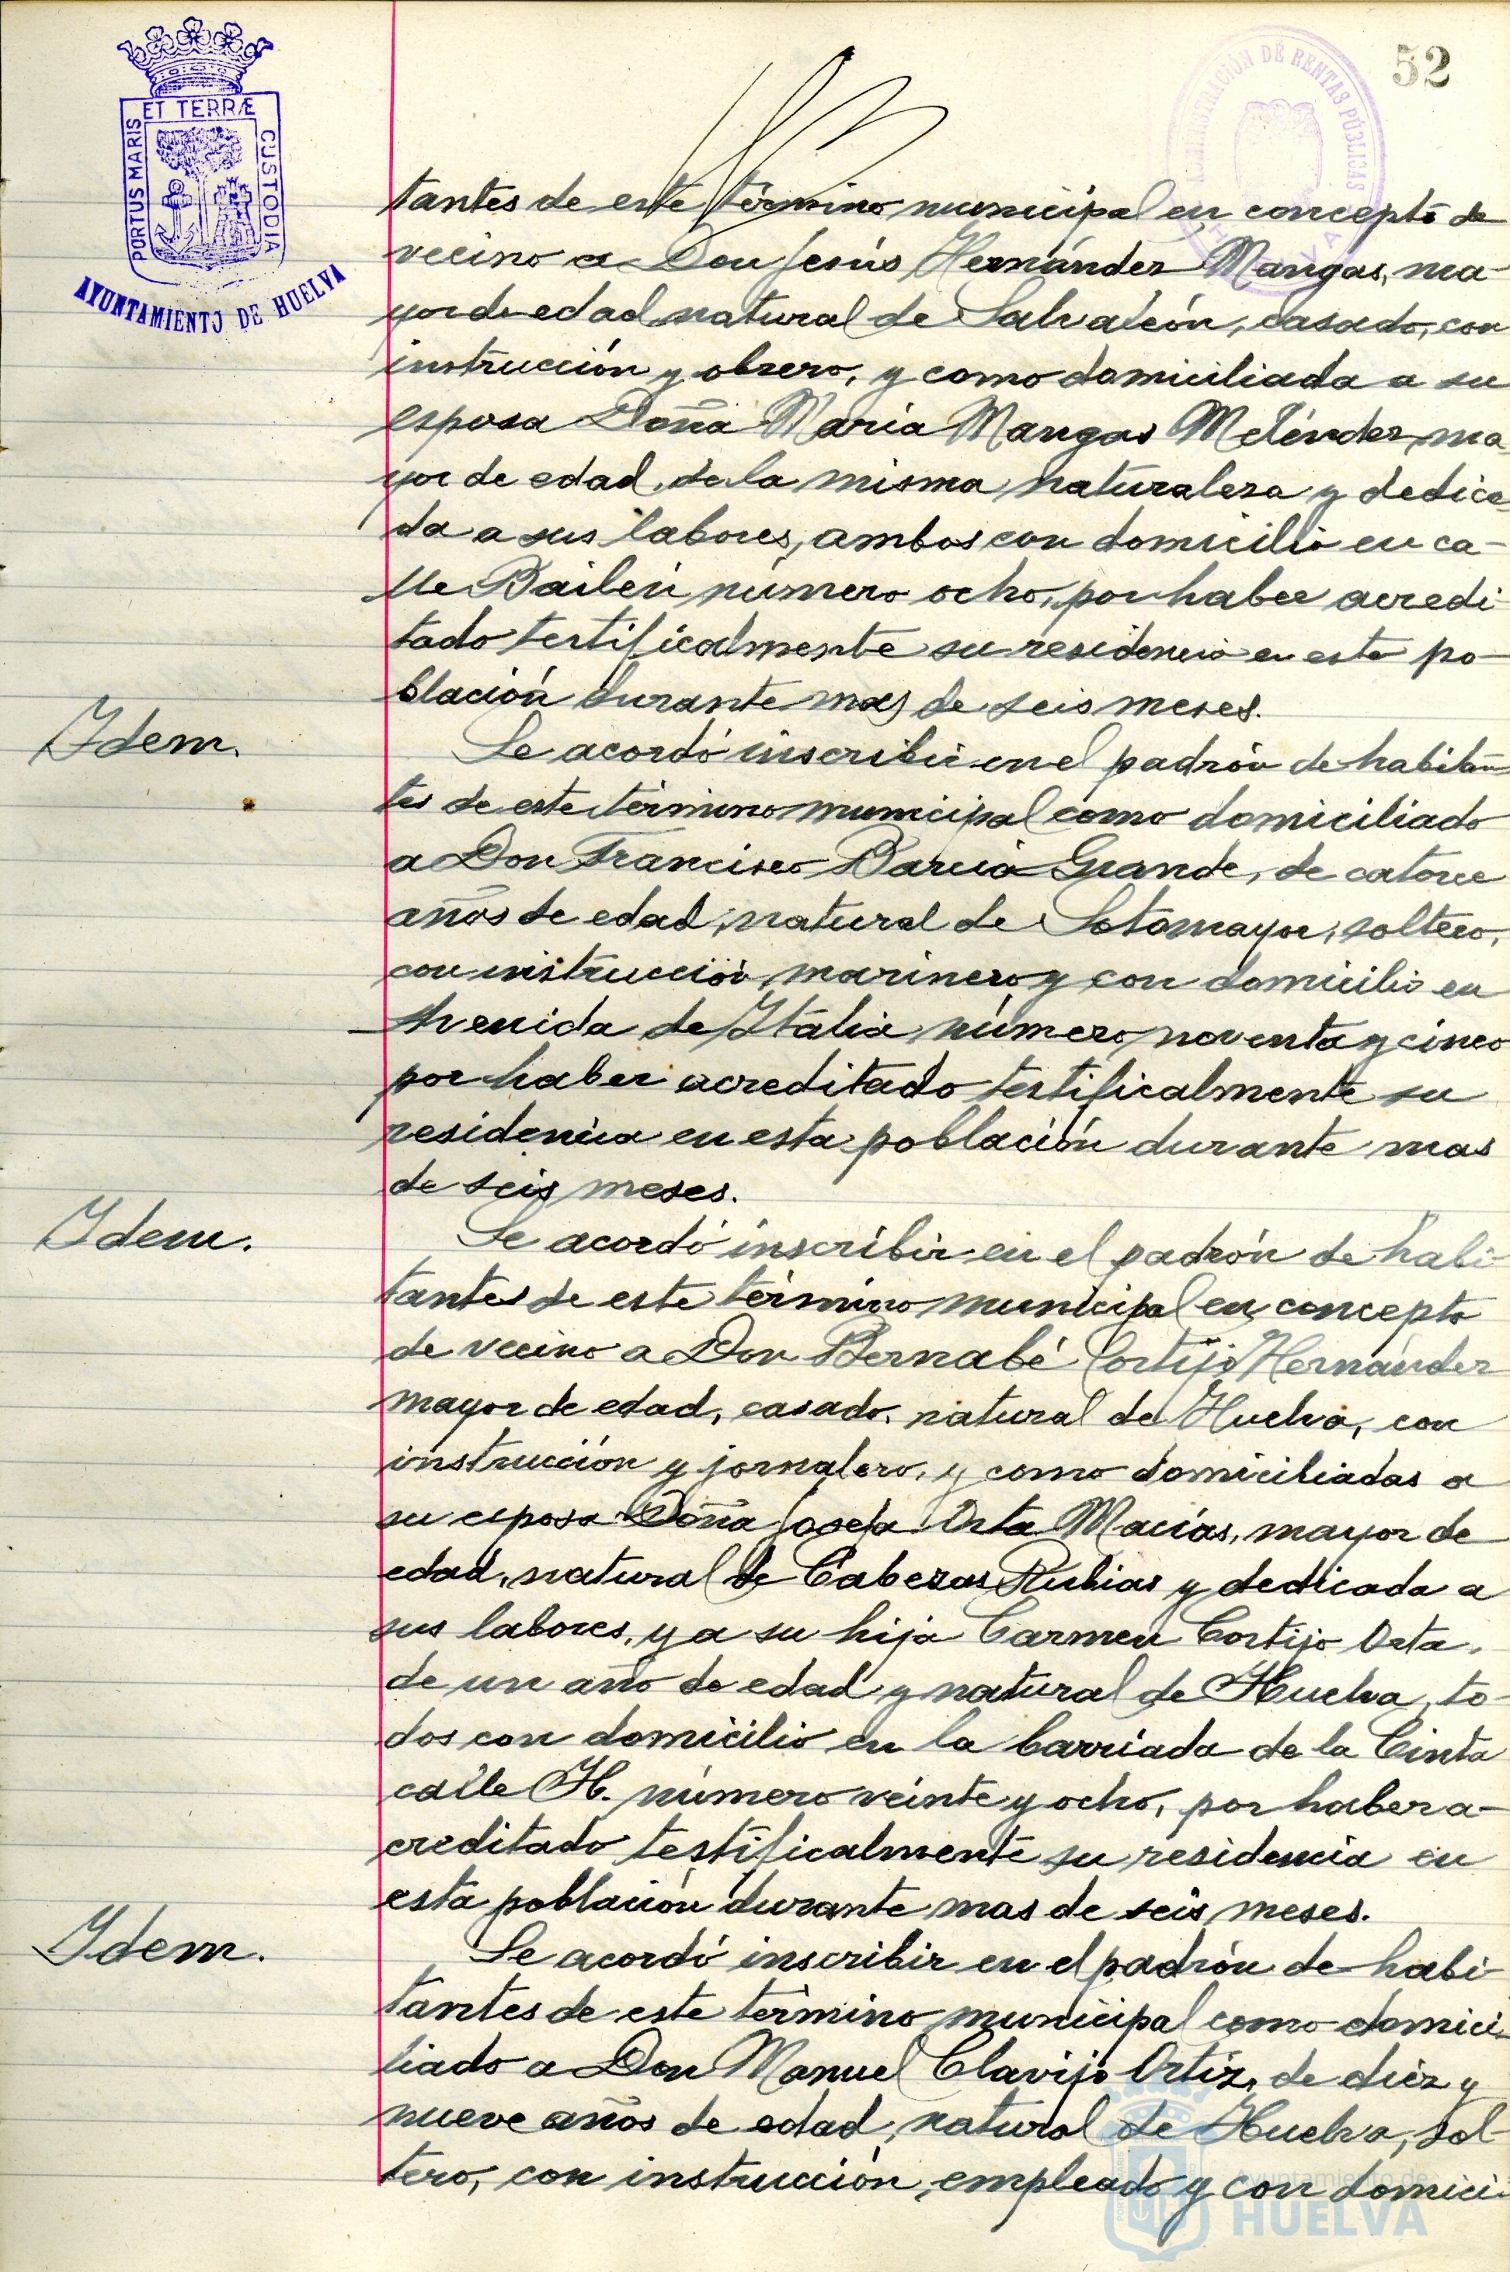 52
ET TERRÆ
PORTUS MARIS
CUSTODIA
AYUNTAMIENTO DE HUELVA
ADMINISTRACIÓN DE RENTAS PÚBLICAS
tantes de este término municipal en concepto de
vecino a Don Jesús Hernández Mangas, ma-
yor de edad, natural de Salvaleón, casado, con
instrucción y obrero, y como domiciliada a su
esposa Doña María Mangas Meléndez, ma
yor de edad, de la misma naturaleza y dedica
da a sus labores, ambos con domicilio en ca-
lle Bailén número ocho, por haber acredi-
tado testificalmente su residencia en esta po-
blación durante mas de seis meses.
Idem.
Se acordó inscribir en el padrón de habitan
tes de este término municipal como domiciliado
a Don Francisco Barcia Grande, de catorce
años de edad, natural de Sotomayor, soltero,
con instrucción, marinero y con domicilio en
Avenida de Italia número noventa y cinco
por haber acreditado testificalmente su
residencia en esta población durante mas
de seis meses.
Idem.
Se acordó inscribir en el padrón de habi-
tantes de este término municipal en concepto
de vecino a Don Bernabé Cortijo Hernández
mayor de edad, casado, natural de Huelva, con
instrucción y jornalero, y como domiciliadas a
su esposa Doña Josefa Orta Macías, mayor de
edad, natural de Cabezas Rubias y dedicada a
sus labores, y a su hija Carmen Cortijo Orta,
de un año de edad y natural de Huelva, to-
dos con domicilio en la barriada de la Cinta
calle H. número veinte y ocho, por haber a-
creditado testificalmente su residencia en
esta población durante mas de seis meses.
Idem.
Se acordó inscribir en el padrón de habi-
tantes de este término municipal como domici-
liado a Don Manuel Clavijo Ortiz, de diez y
nueve años de edad, natural de Huelva, sol-
tero, con instrucción, empleado y con domici-
Ayuntamiento de
HUELVA